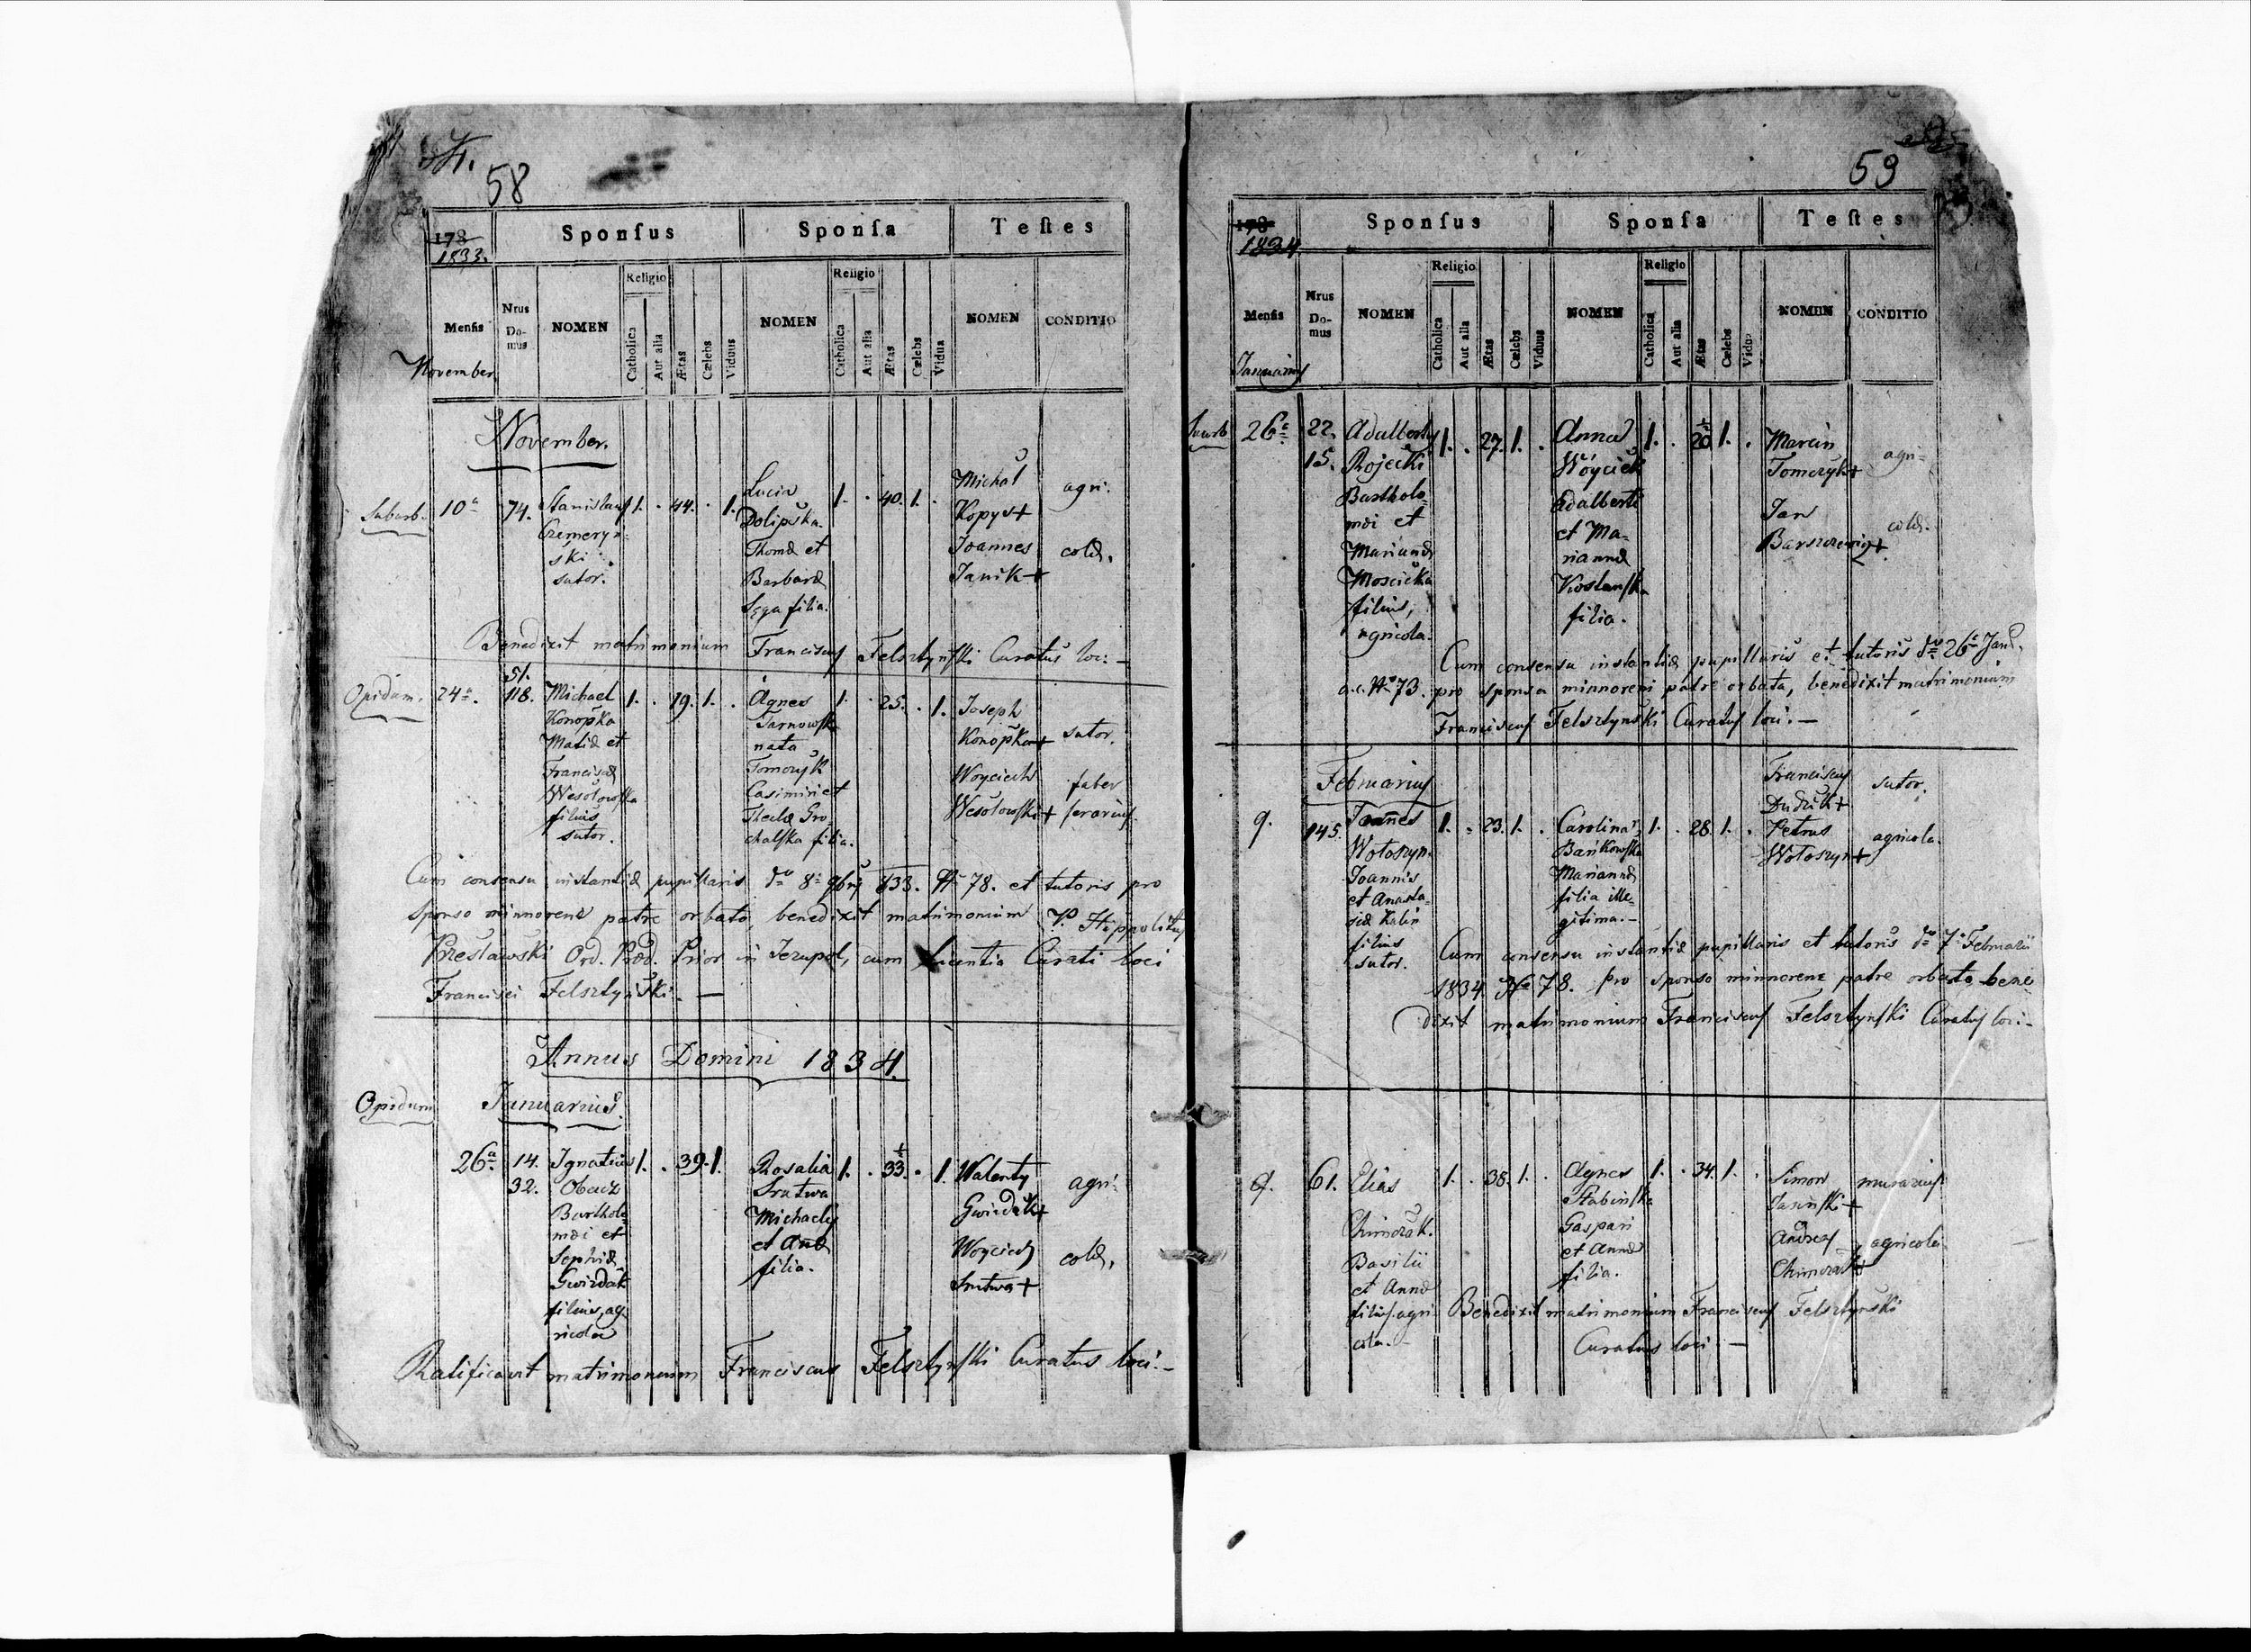 58
178
1833.
Sponſus
Sponſa
Teſtes
Menſis
Nrus Do-mus
NOMEN
Religio
Catholica
Aut alia
Ætas
Cælebs
Viduus
NOMEN
Religio
Catholica
Aut alia
Ætas
Cælebs
Vidua
NOMEN
CONDITIO
November
November.
Suburb. 10a 74. Stanislaus 1. . 44. . 1. Lucia 1. . 40. 1. . Michal agri:
Dolipska. Kopys+
ski Thomæ et Joannes colæ.
sutor. Barbaræ Janik+
filia.
Benedixit matrimonium Franciscus Felsztyński Curatus loci.—
51.
Opidum. 24a. 118. Michael 1. . 19. 1. . Agnes 1. . 25. . 1. Joseph
Konopka Tarnowska Konopka+ sutor.
et nata
Franciscæ Tomczyk Woyciech faber
Wesołowska Casimiri et Wesołowski+ ferarius.
filius Theclæ Gro-
sutor. chalska filia.
Cum consensu instantiæ pupillaris 8a 9bris 833. N 78. et tutoris pro
Sponso minorene patre orbato, benedixit matrimonium P. Hippolitus
Ord. Præd. Prior in Jezupol, cum licentia Curati loci
Francisci Felsztyński.—
Annus Domini 1834.
Opidum Januarius.
26a. 14. Ignatius 1. . 39. 1. Rosalia 1. . 33. . 1. Walenty agri:
32. Srutwa Gwizdak+
Bartholo- Michaelis
mæi et et Annæ Woyciech colæ.
Sophiæ filia. Srutwa+
Gwizdak
filius, ag-
ricola
Ratificavit matrimonium Franciscus Felsztyński Curatus loci.—
59
178
1834.
Sponſus
Sponſa
Teſtes
Menſis
Nrus Do-mus
NOMEN
Religio
Catholica
Aut alia
Ætas
Cælebs
Viduus
NOMEN
Religio
Catholica
Aut alia
Ætas
Cælebs
Vidua
NOMEN
CONDITIO
Januarius
26a. 22. Adalbertus 1. . 27. 1. . Anna 1. . 20 1. . Marcin agri-
15. Rojecki Wóyciek Tomczyk+
Bartholo- Adalberti
mæi et et Ma- Jan colæ.
Mariannæ riannæ Barszcewicz+
Moscicka Koslanska
filius, filia.
agricola.
Cum consensu instantiæ pupillaris et tutoris 26a Jan.
a.c. N 73. pro sponsa minnoreni patre orbata, benedixit matrimonium
Franciscus Felsztyński Curatus loci.—
Februarius Franciscus sutor.
Dudzik+
9. 145. Joannes 1. . 23. 1. . Carolina 1. . 28. 1. . Petrus agricola.
Wołoszyn. Bańkowska Wołoszyn+
Joannis Mariannæ
et Anasta- filia ille-
siæ Kalin gitima.—
filius
sutor.
Cum consensu instantiæ pupillaris et tutoris 7a Februarii
1834 N 78. pro sponso minnorene patre orbato, bene-
dixit matrimonium Franciscus Felsztyński Curatus loci.—
9. 61. Elias 1. . 38. 1. . Agnes 1. . 34. 1. . Simon murarius
Chimczak. Stabinska Jasiński+
Basilii Gaspari Andreas agricola
et Annæ et Annæ Chimczak+
filius, agri- filia.
cola.
Benedixit matrimonium Franciscus Felsztyński
Curatus loci.—